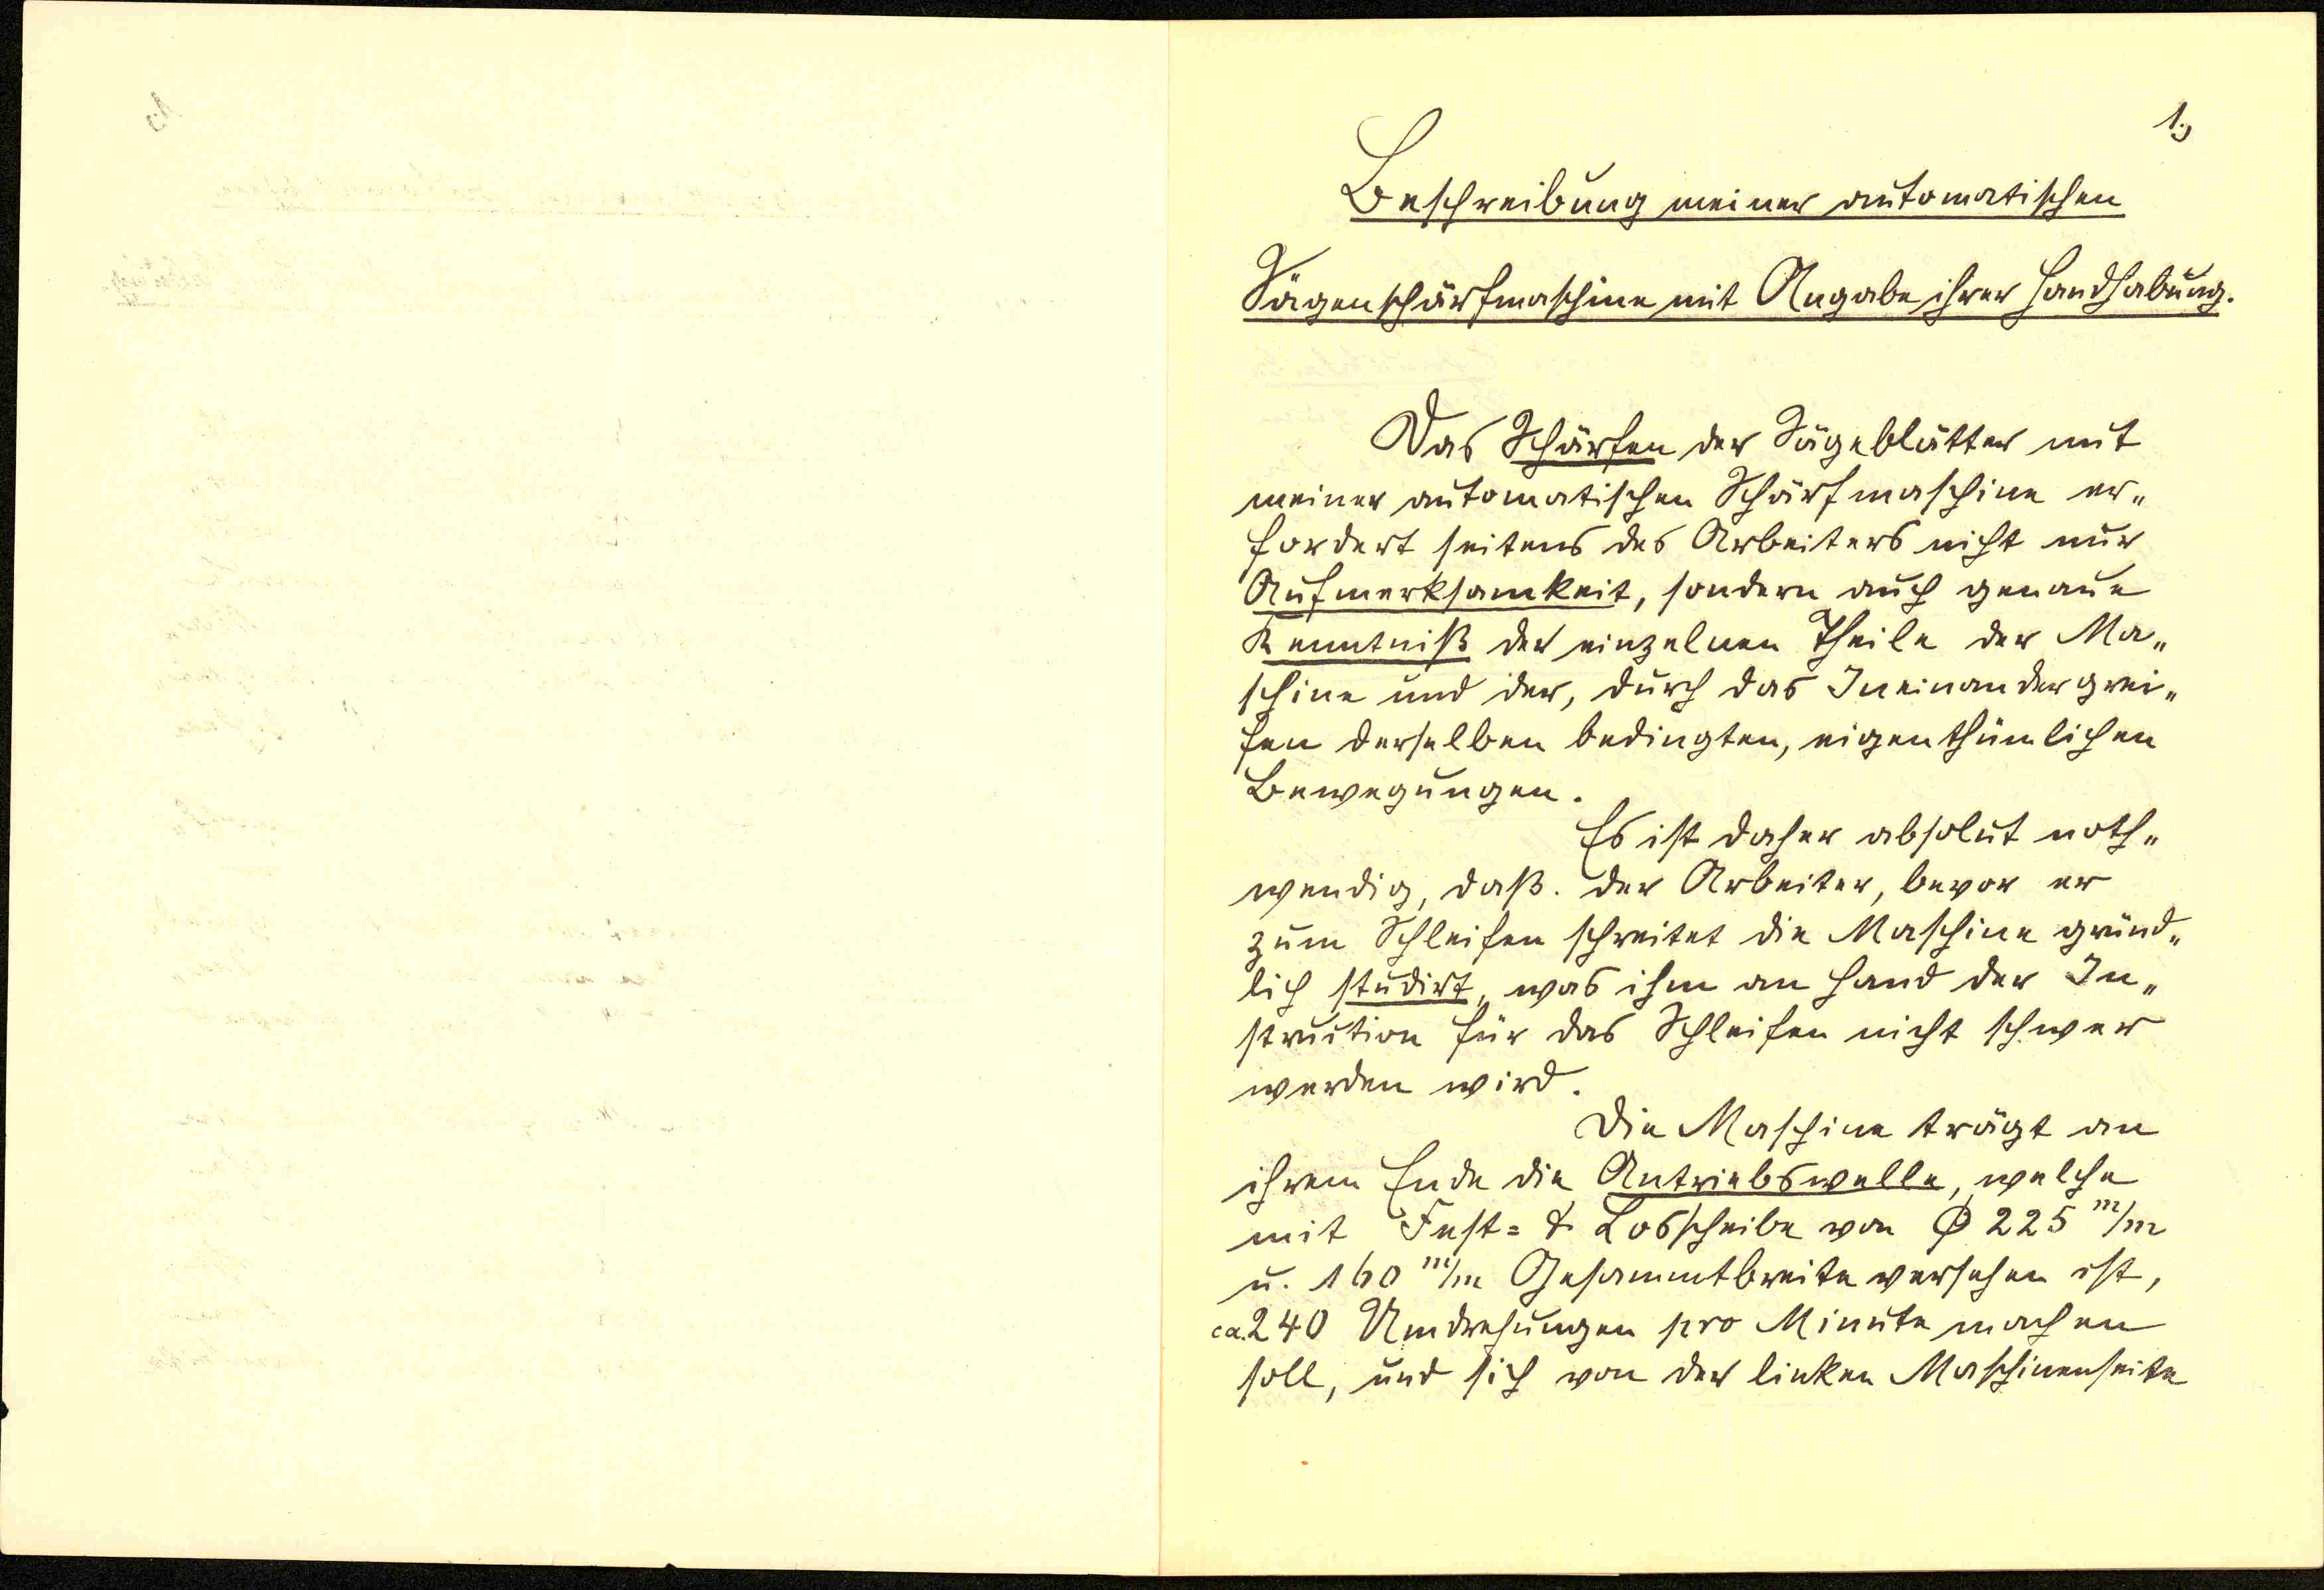 1.)
Beschreibung meiner automatischen
Sägenschärfmaschine mit Angabe ihrer Handhabung.
Das Schärfen der Sägeblätter mit
meiner automatischen Schärfmaschine er„
fordert seitens des Arbeiters nicht nur
Aufmerksamkeit, sondern auch genaue
Kenntniß der einzelnen Theile der Ma„
schine und der, durch das Ineinandergrei„
fen derselben bedingten, eigenthümlichen
Bewegungen.
Es ist daher absolut noth„
wendig, daß der Arbeiter, bevor er
zum Schleifen schreitet die Maschine gründ„
lich studirt, was ihm an Hand der In„
struction für das Schleifen nicht schwer
werden wird.
Die Maschine trägt an
ihrem Ende die Antriebswelle, welche
mit Fest= & Losscheibe von Ø 225 m/m
u. 160 m/m Gesammtbreite versehen ist,
ca. 240 Umdrehungen pro Minute machen
soll, und sich von der linken Maschinenseite